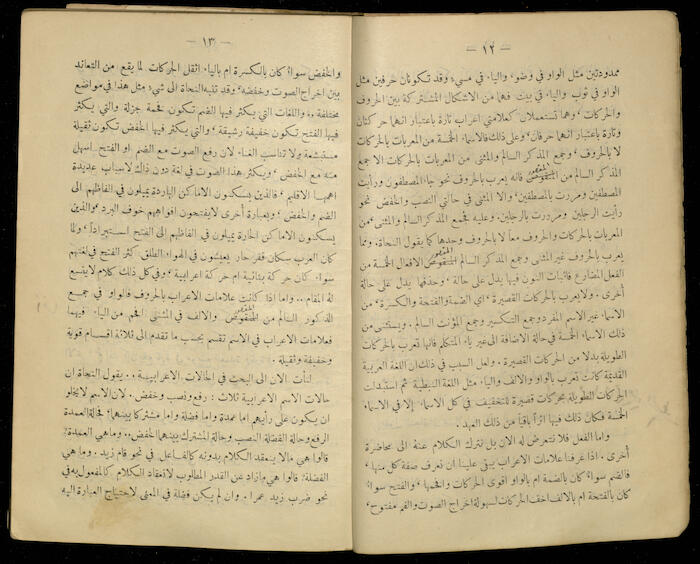 — ١٢ —
ممدودتين مثل الواو في وضوء، والياء في مسيء وقد تكونان حرفين مثل
الواو في ثوب والياء في بيت فهما من الاشكال المشتركة بين الحروف
والحركات، وهما تستعملان كعلامتي اعراب تارة باعتبار انهما حركتان
وتارة باعتبار انهما حرفان، وعلى ذلك فالاسماء الخمسة من المعربات بالحركات
لا بالحروف، وجمع المذكر السالم والمثنى من المعربات بالحركات الا جمع
المذكر السالم من المنقوص المقصور فانه يعرب بالحروف نحو جاء المصطفون ورأيت
المصطفين ومررت بالمصطفين، والا المثنى في حالتي النصب والخفض نحو
رأيت الرجلين ومررت بالرجلين. وعليه فجمع المذكر السالم والمثنى من
المعربات بالحركات والحروف معاً لا بالحروف وحدها كما يقول النحاة، ومما
يعرب بالحروف غير المثنى وجمع المذكر السالم المنقوص المقصور الافعال الخمسة من
الفعل المضارع فاثبات النون فيها يدل على حالة، وحذفها يدل على حالة
أخرى. ولا يعرب بالحركات القصيرة، اي الضمة والفتحة والكسرة، من
الاسماء غير الاسم المفرد وجمع التكسير وجمع المؤنث السالم. ويستثنى من
ذلك الاسماء الخمسة في حالة الاضافة الى غير ياء المتكلم فانها تعرب بالحركات
الطويلة بدلا من الحركات القصيرة. ولعل السبب في ذلك ان اللغة العربية
القديمة كانت تعرب بالواو والالف والياء مثل اللغة النبطية ثم استبدلت
الحركات الطويلة بحركات قصيرة للتخفيف في كل الاسماء إلا في الاسماء
الخمسة فكان ذلك فيها اثراً باقياً من ذلك العهد.
واما الفعل فلا نتعرض له الان بل نترك الكلام عنه الى محاضرة
أخرى. اذا عرفنا علامات الاعراب بقي علينا ان نعرف صفة كل منها،
فالضم سواء كان بالضمة ام بالواو اقوى الحركات وافخمها، والفتح سواء
كان بالفتحة ام بالالف اخف الحركات لسهولة اخراج الصوت والفم مفتوح،
— ١٣ —
والخفض سواء كان بالكسرة ام بالياء اثقل الحركات لما يقع من التعاند
بين اخراج الصوت وخفضه، وقد تنبه النحاة الى شيء مثل هذا في مواضع
مختلفة، واللغات التي يكثر فيها الضم تكون فخمة جزلة والتي يكثر
فيها الفتح تكون خفيفة رشيقة، والتي يكثر فيها الخفض تكون ثقيلة
مستبشعة ولا تناسب الغناء لان رفع الصوت مع الضم او الفتح اسهل
منه مع الخفض، ويكثر هذا الصوت في لغة دون ذاك لاسباب عديدة
اهمها الاقليم، فالذين يسكنون الاماكن الباردة يميلون في الفاظهم الى
الضم والخفض، وبعبارة أخرى لا يفتحون افواههم خوف البرد، والذين
يسكنون الاماكن الحارة يميلون في الفاظهم الى الفتح استبراداً، ولما
كان العرب سكان قفر حار يعيشون في الهواء الطلق كثر الفتح في لغتهم
سواء كان حركة بنائية ام حركة اعرابية، وفي كل ذلك كلام لا يتسع
له المقام.. واما اذا كانت علامات الاعراب بالحروف فالواو في جمع
الذكور السالم من المنقوص المقصور والالف في المثنى افخم من الياء فيهما
فعلامات الاعراب في الاسم تقسم بحسب ما تقدم الى ثلاثة اقسام قوية
وخفيفة وثقيلة.
لنأت الان الى البحث في الحالات الاعرابية.. يقول النحاة ان
حالات الاسم الاعرابية ثلاث: رفع ونصب وخفض. لان الاسم لا يخلو
ان يكون على رأيهم اما عمدة واما فضلة واما مشتركا بينهما، فحالة العمدة
الرفع وحالة الفضلة النصب وحالة المشترك بينهما الخفض.. وما هي العمدة؛
قالوا هي ما لا ينعقد الكلام بدونه كالفاعل في نحو قام زيد. وما هي
الفضلة؛ قالوا هي ما زاد عن القدر المطلوب لانعقاد الكلام كالمفعول به في
نحو ضرب زيد عمرا. وان لم يكن فضلة في المعنى لاحتياج العبارة اليه